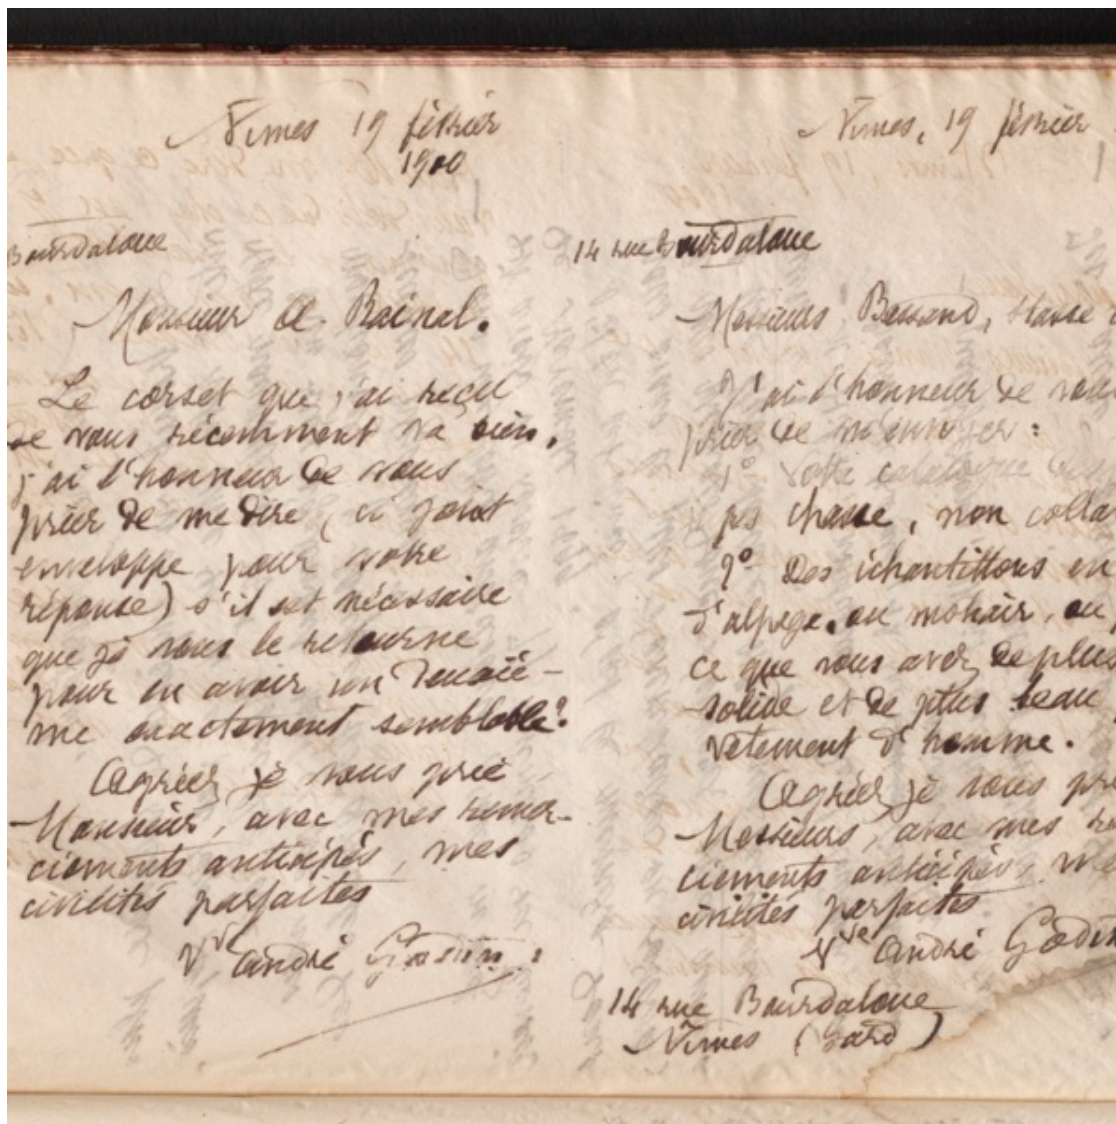 Nimes 19 février
1900
Bourdaloue
Monsieur de Rainal.
Le corset que j'ai reçu
de vous récemment va bien.
j'ai l'honneur de vous
prier de me dire (ci joint
enveloppe pour votre
réponse) s'il est nécessaire
que je vous le retourne
pour en avoir un deuxiè-
me exactement semblable?
Agréez, je vous prie
Monsieur, avec mes remer-
ciements anticipés, mes
civilités parfaites
Vve André Godin.
Nimes, 19 février
14 rue Bourdaloue
Messieurs Bessand,
J'ai l'honneur de vous
prier de m'envoyer:
1° Votre catalogue
chasse, non colla
2° Des échantillons en
d'alpaga, ou mohair, ou
ce que vous avez de plus
solide et de plus beau
vêtement d'homme.
Agréez, je vous pr
Messieurs, avec mes re
ciements anticipés, me
civilités parfaites
Vve André Godin
14 rue Bourdaloue
Nimes (Gard)